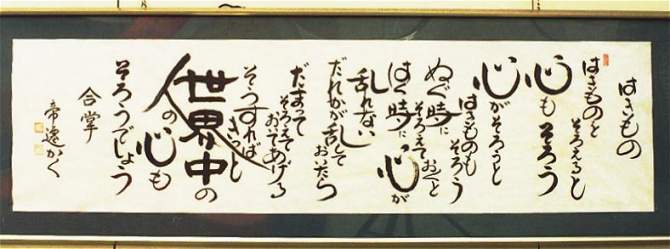 はきもの
はきものを
そろえると
心もそろう
心がそろうと
はきものも
そろう
ぬぐ時に
そろえておくと
はく時に
心が
乱れない
だれかが乱して
おいたら
だまって
そろえて
おいてあげよう
そうすればきっと
世界中の
人の心も
そろうでしょう
合掌